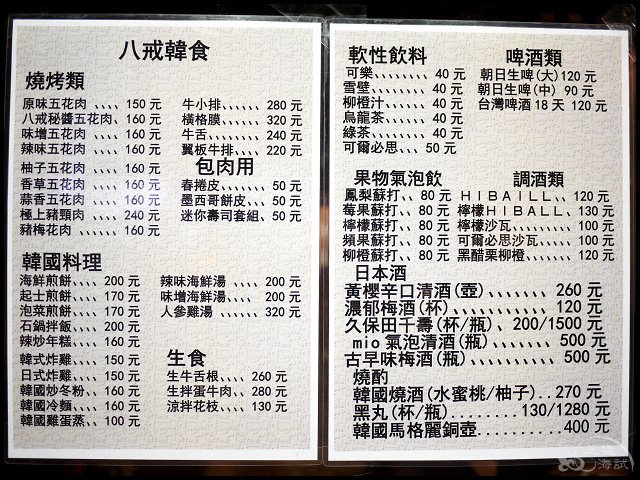 八戒韓食
燒烤類
原味五花肉 、、、、 150 元
八戒秘醬五花肉、 160 元
味增五花肉 、、、、 160 元
辣味五花肉 、、、、 160 元
柚子五花肉 、、、、 160 元
香草五花肉 、、、、 160 元
蒜香五花肉 、、、、 160 元
極上豬頸肉 、、、、 240 元
豬梅花肉 、、、、、 160 元
牛小排、、、、、 280 元
橫格膜、、、、、 320 元
牛舌、、、、、、 240 元
翼板牛排、、、、 220 元
包肉用
春捲皮、、、、、 50 元
墨西哥餅皮、、、 50 元
迷你壽司套組、、 50 元
韓國料理
海鮮煎餅、、、、 200 元
起士煎餅、、、、 170 元
泡菜煎餅、、、、 170 元
石鍋拌飯、、、、 200 元
辣炒年糕、、、、 160 元
韓式炸雞、、、、 150 元
日式炸雞、、、、 150 元
韓國炒冬粉、、 160 元
韓國冷麵、、、、 160 元
韓國雞蛋蒸、、 100 元
辣味海鮮湯 、、、 200 元
味增海鮮湯 、、、 200 元
人參雞湯 、、、、、 320 元
生食
生牛舌根、、、、 260 元
生拌蛋牛肉、、、 280 元
涼拌花枝、、、、 130 元
軟性飲料
可樂、、、、、、、、 40 元
雪壁、、、、、、、、 40 元
柳橙汁、、、、、、 40 元
烏龍茶、、、、、、 40 元
綠茶、、、、、、、、 40 元
可爾必思、、、、 50 元
啤酒類
朝日生啤(大)120 元
朝日生啤(中) 90 元
台灣啤酒 18 天 120 元
果物氣泡飲
鳳梨蘇打、、 80 元
莓果蘇打、、 80 元
檸檬蘇打、、 80 元
頻果蘇打、、 80 元
柳橙蘇打、、 80 元
調酒類
ＨＩＢＡＩＬＬ、、120 元
檸檬ＨＩＢＡＬＬ、130 元
檸檬沙瓦、、、、、 100 元
可爾必思沙瓦、、、 100 元
黑醋栗柳橙、、、、 120 元
日本酒
黃櫻辛口清酒(壺)、、、、、、、 260 元
濃郁梅酒(杯)、、、、、、、、、、 120 元
久保田千壽(杯/瓶)、、200/1500 元
mio 氣泡清酒(瓶)、、、、、、、 500 元
古早味梅酒(瓶)、、、、、、、、、 500 元
燒酌
韓國燒酒(水蜜桃/柚子)..270 元
黑丸(杯/瓶).........130/1280 元
韓國馬格麗銅壺..........400 元
海試